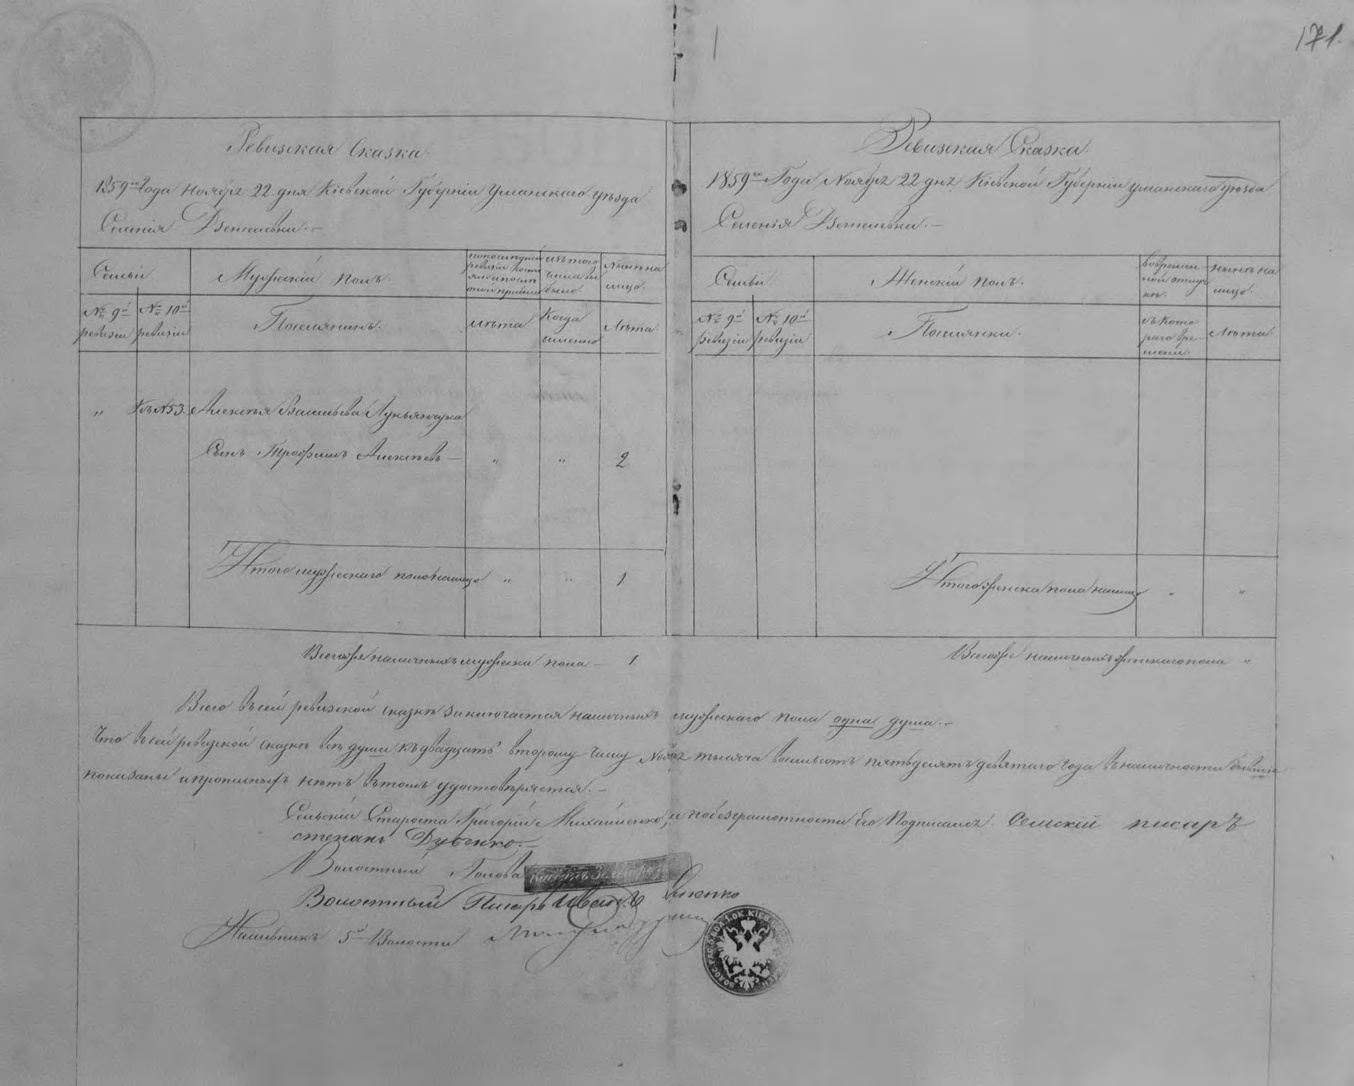 171.
Ревизская Сказка.
1859го Года Ноября 22 дня Кіевской Губерніи Уманскаго уѣзда
Селенія
Семьи
Мужескій полъ.
по послѣдній ревизіи
изъ того числа
Нынѣ на лицо.
№ 9й ревизіи
№ 10й ревизіи
Поселянинъ.
лѣта
Когда именно
Лѣта.
„ №53. Алексѣя Васильева Лукьянчука
Сынъ Трофимъ Алексѣевъ — „ „ 2
Итого мужескаго пола налицо „ „ 1.
Всего же наличныхъ мужеска пола — 1.
Ревизская Сказка.
1859го Года Ноября 22 дня Кіевской Губерніи Уманскаго уѣзда
Селенія
Семьи
Женскій полъ.
во временной отлучкѣ
нынѣ на лицо.
№ 9й ревизіи
№ 10й ревизіи
Поселянки.
съ котораго времени
Лѣта
Итого женска пола налицо „ „
Всего же наличныхъ женскаго пола „
Всего въ сей ревизской сказкѣ заключается наличныхъ мужескаго пола одна душа.—
Что въ сей ревизской сказкѣ всѣ души къ двадцать второму числу Ноября тысяча восемьсотъ пятьдесятъ девятаго Года въ наличности бывшіе
показаны и прописныхъ нѣтъ въ томъ удостовѣряется.—
Сельскій Староста Григорій Михайленко, а по безграмотности Его Подписалъ. Сельскій писаръ
степанъ Дубенко.—
Волостный Голова
Волостный Писарь Иванъ
Начальникъ 5й Волости